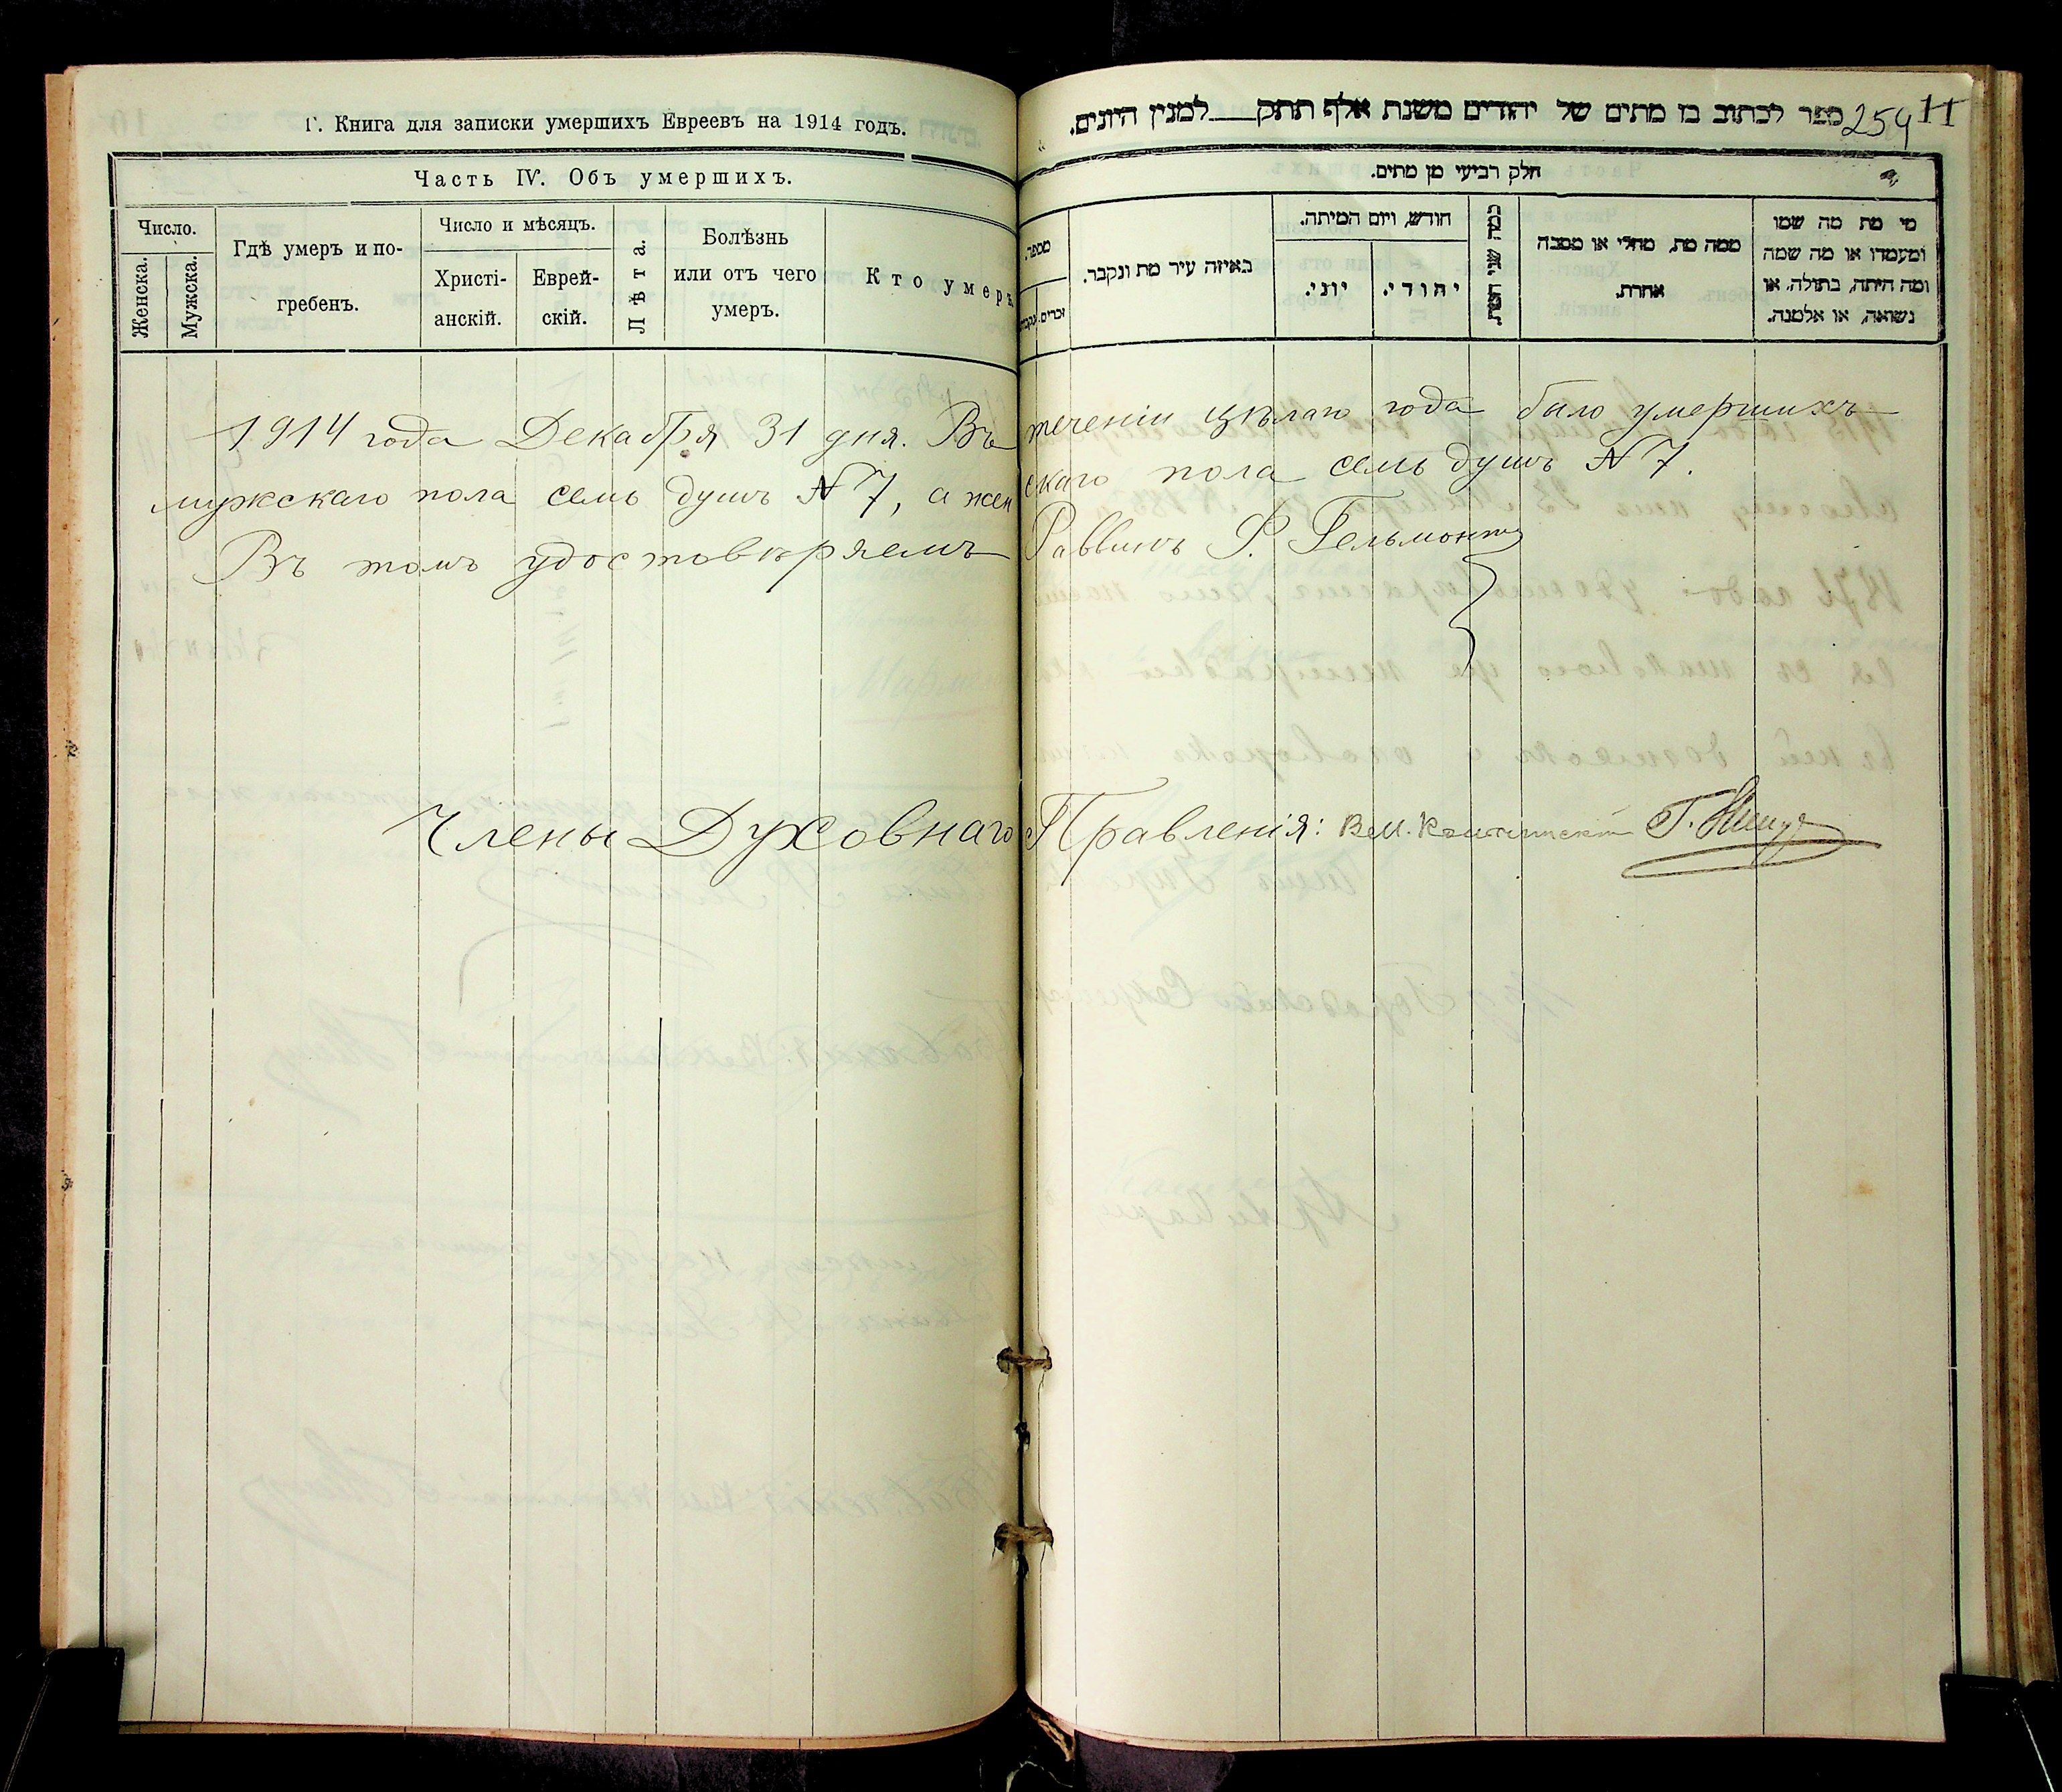 Г. Книга для записки умершихъ Евреевъ на 1914 годъ.
Часть IV. Объ умершихъ.
Число.
Женска.
Мужска.
Гдѣ умеръ и по-
гребенъ.
Число и мѣсяцъ.
Христі-
анскій.
Еврей-
скій.
Лѣта.
Болѣзнь
или отъ чего
умеръ.
Кто умеръ
ספר לכתוב בו מתים של יהודים משנת אלף תתק___למנין היונים.
259 11
חלק רביעי מן מתים.
מספר.
זכרים.
באיזה עיר מת ונקבר.
חודש, ויום המיתה.
יוני.
יהודי.
ממה מת, מחלי או מסבה
אחרת.
מי מת מה שמו
ומעמדו או מה שמה
ומה היתה, בתולה, או
נשואה, או אלמנה.
1914 года Декабря 31 дня. Въ теченіи цѣлаго года было умершихъ
мужскаго пола семь душъ № 7, а женскаго пола семь душъ № 7.
Въ томъ удостовѣряемъ Раввинъ Ф. Гельмонтъ
Члены Духовнаго Правленія: